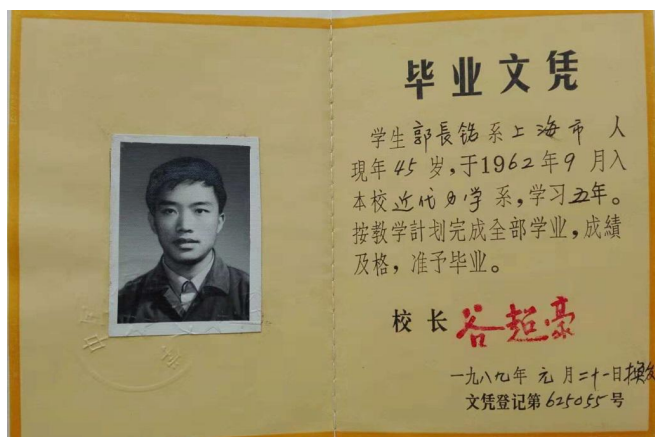 毕业文凭
学生郭長铭系上海市 人
現年45岁,于1962年9月入
本校近代力学系,学习五年。
按教学計划完成全部学业,成績
及格,准予毕业。
校长谷超豪
一九八九年元月二十一日換发
文凭登记第625055号